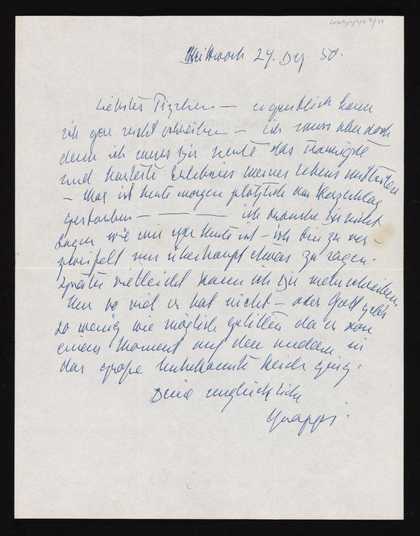 Mittwoch 27. Dez 50.
Liebster Tizchen — eigentlich kann
ich gar nicht schreiben — ich muss aber doch
denn ich muss Dir heute das traurigste
und härteste Erlebnis meines Lebens mitteilen
— ist heute morgen plötzlich am Herzschlag
gestorben — ich brauche Dir nicht
sagen wie mir zu Mute ist — ich bin zu ver-
zweifelt um überhaupt etwas zu sagen.
Später vielleicht kann ich Dir mehr schreiben
Nur so viel er hat nicht — oder Gott gebs
so wenig wie möglich gelitten da er von
einem Moment auf den anderen in
das große Unbekannte Reich ging.
Deine unglückliche